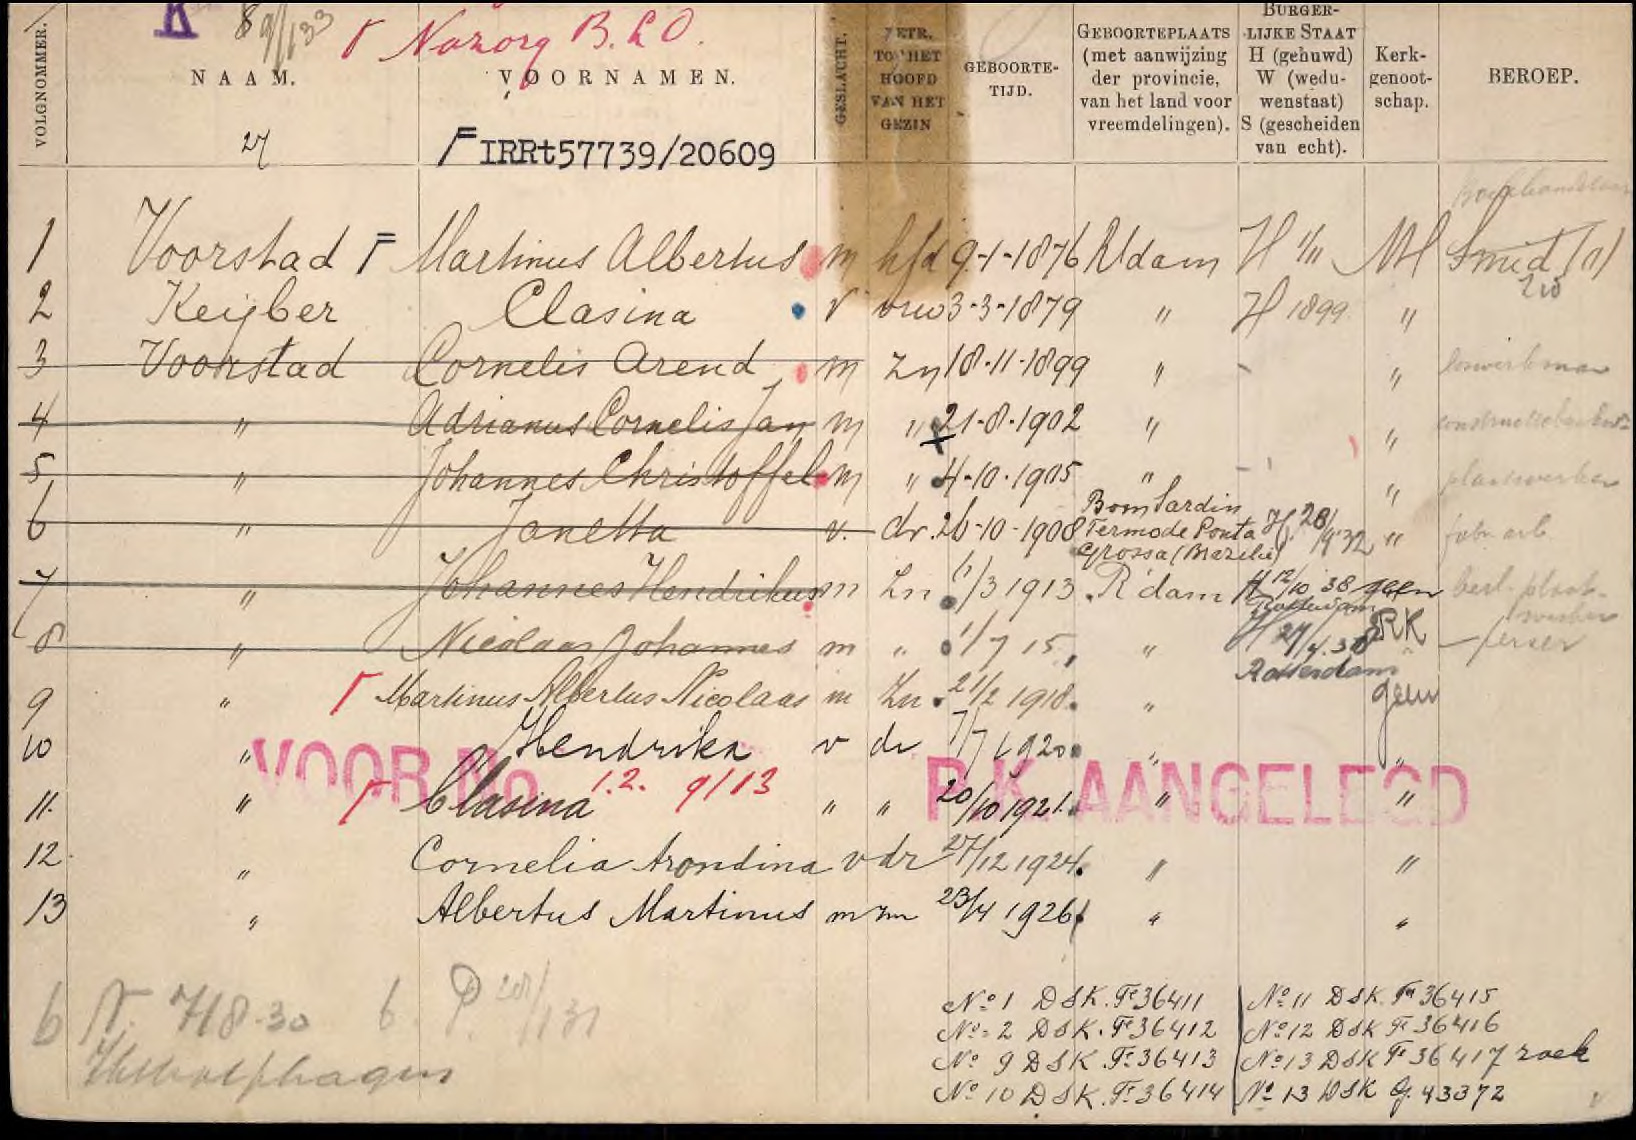 K 8 9/133 Nazorg B.L.O.
VOLGNOMMER. NAAM. VOORNAMEN. GESLACHT. BETR. TOT HET HOOFD VAN HET GEZIN GEBOORTE-TIJD. GEBOORTEPLAATS (met aanwijzing der provincie, van het land voor vreemdelingen). BURGER-LIJKE STAAT H (gehuwd) W (wedu-wenstaat) S (gescheiden van echt). Kerk-genoot-schap. BEROEP.
27 IRRt57739/20609
1 Voorstad Martinus Albertus m hfd 9-1-1876 R'dam H 1/11 NH Smid (a)
2 Keijber Clasina v vrw 3-3-1879 " H 1899 "
3 Voorstad Cornelis Arend m zn 18-11-1899 " - " loswerkman
4 " Adrianus Cornelis Jan m " 21-8-1902 " "
5 " Johannes Christoffel m " 4-10-1905 " - " plaatswerker
6 " Janetta v. dr. 26-10-1908 Bom Jardin Termo de Ponta Grossa (Brazilië) H 28/9 32 " fabr. arb.
7 " Johannes Hendrikus m Zn 1/3 1913 R'dam H 12/10 38 Rotterdam geen
8 " Nicolaas Johannes m " 1/7 15 " H 27/4.38 Rotterdam RK perser
9 " Martinus Albertus Nicolaas m Zn 21/2 1918 " geen
10 " Hendrika v dr 7/7 1920 " "
VOOR No. 1.2. 9/13 P.K. AANGELEGD
11. " Clasina " " 20/10 1921 " "
12. " Cornelia Arondina v dr 27/12 1924 " "
13 " Albertus Martinus m zn 23/4 1926 " "
6 N. 718-30 6. P
No 1 DSK. Fr 36411 No 11 DSK. Fr 36415
No 2 DSK. Fr 36412 No 12 DSK Fr 36416
No 9 DSK. Fr. 36413 No 13 DSK Fr 36417 zoek
No 10 DSK. Fr. 36414 No 13 DSK G. 43372